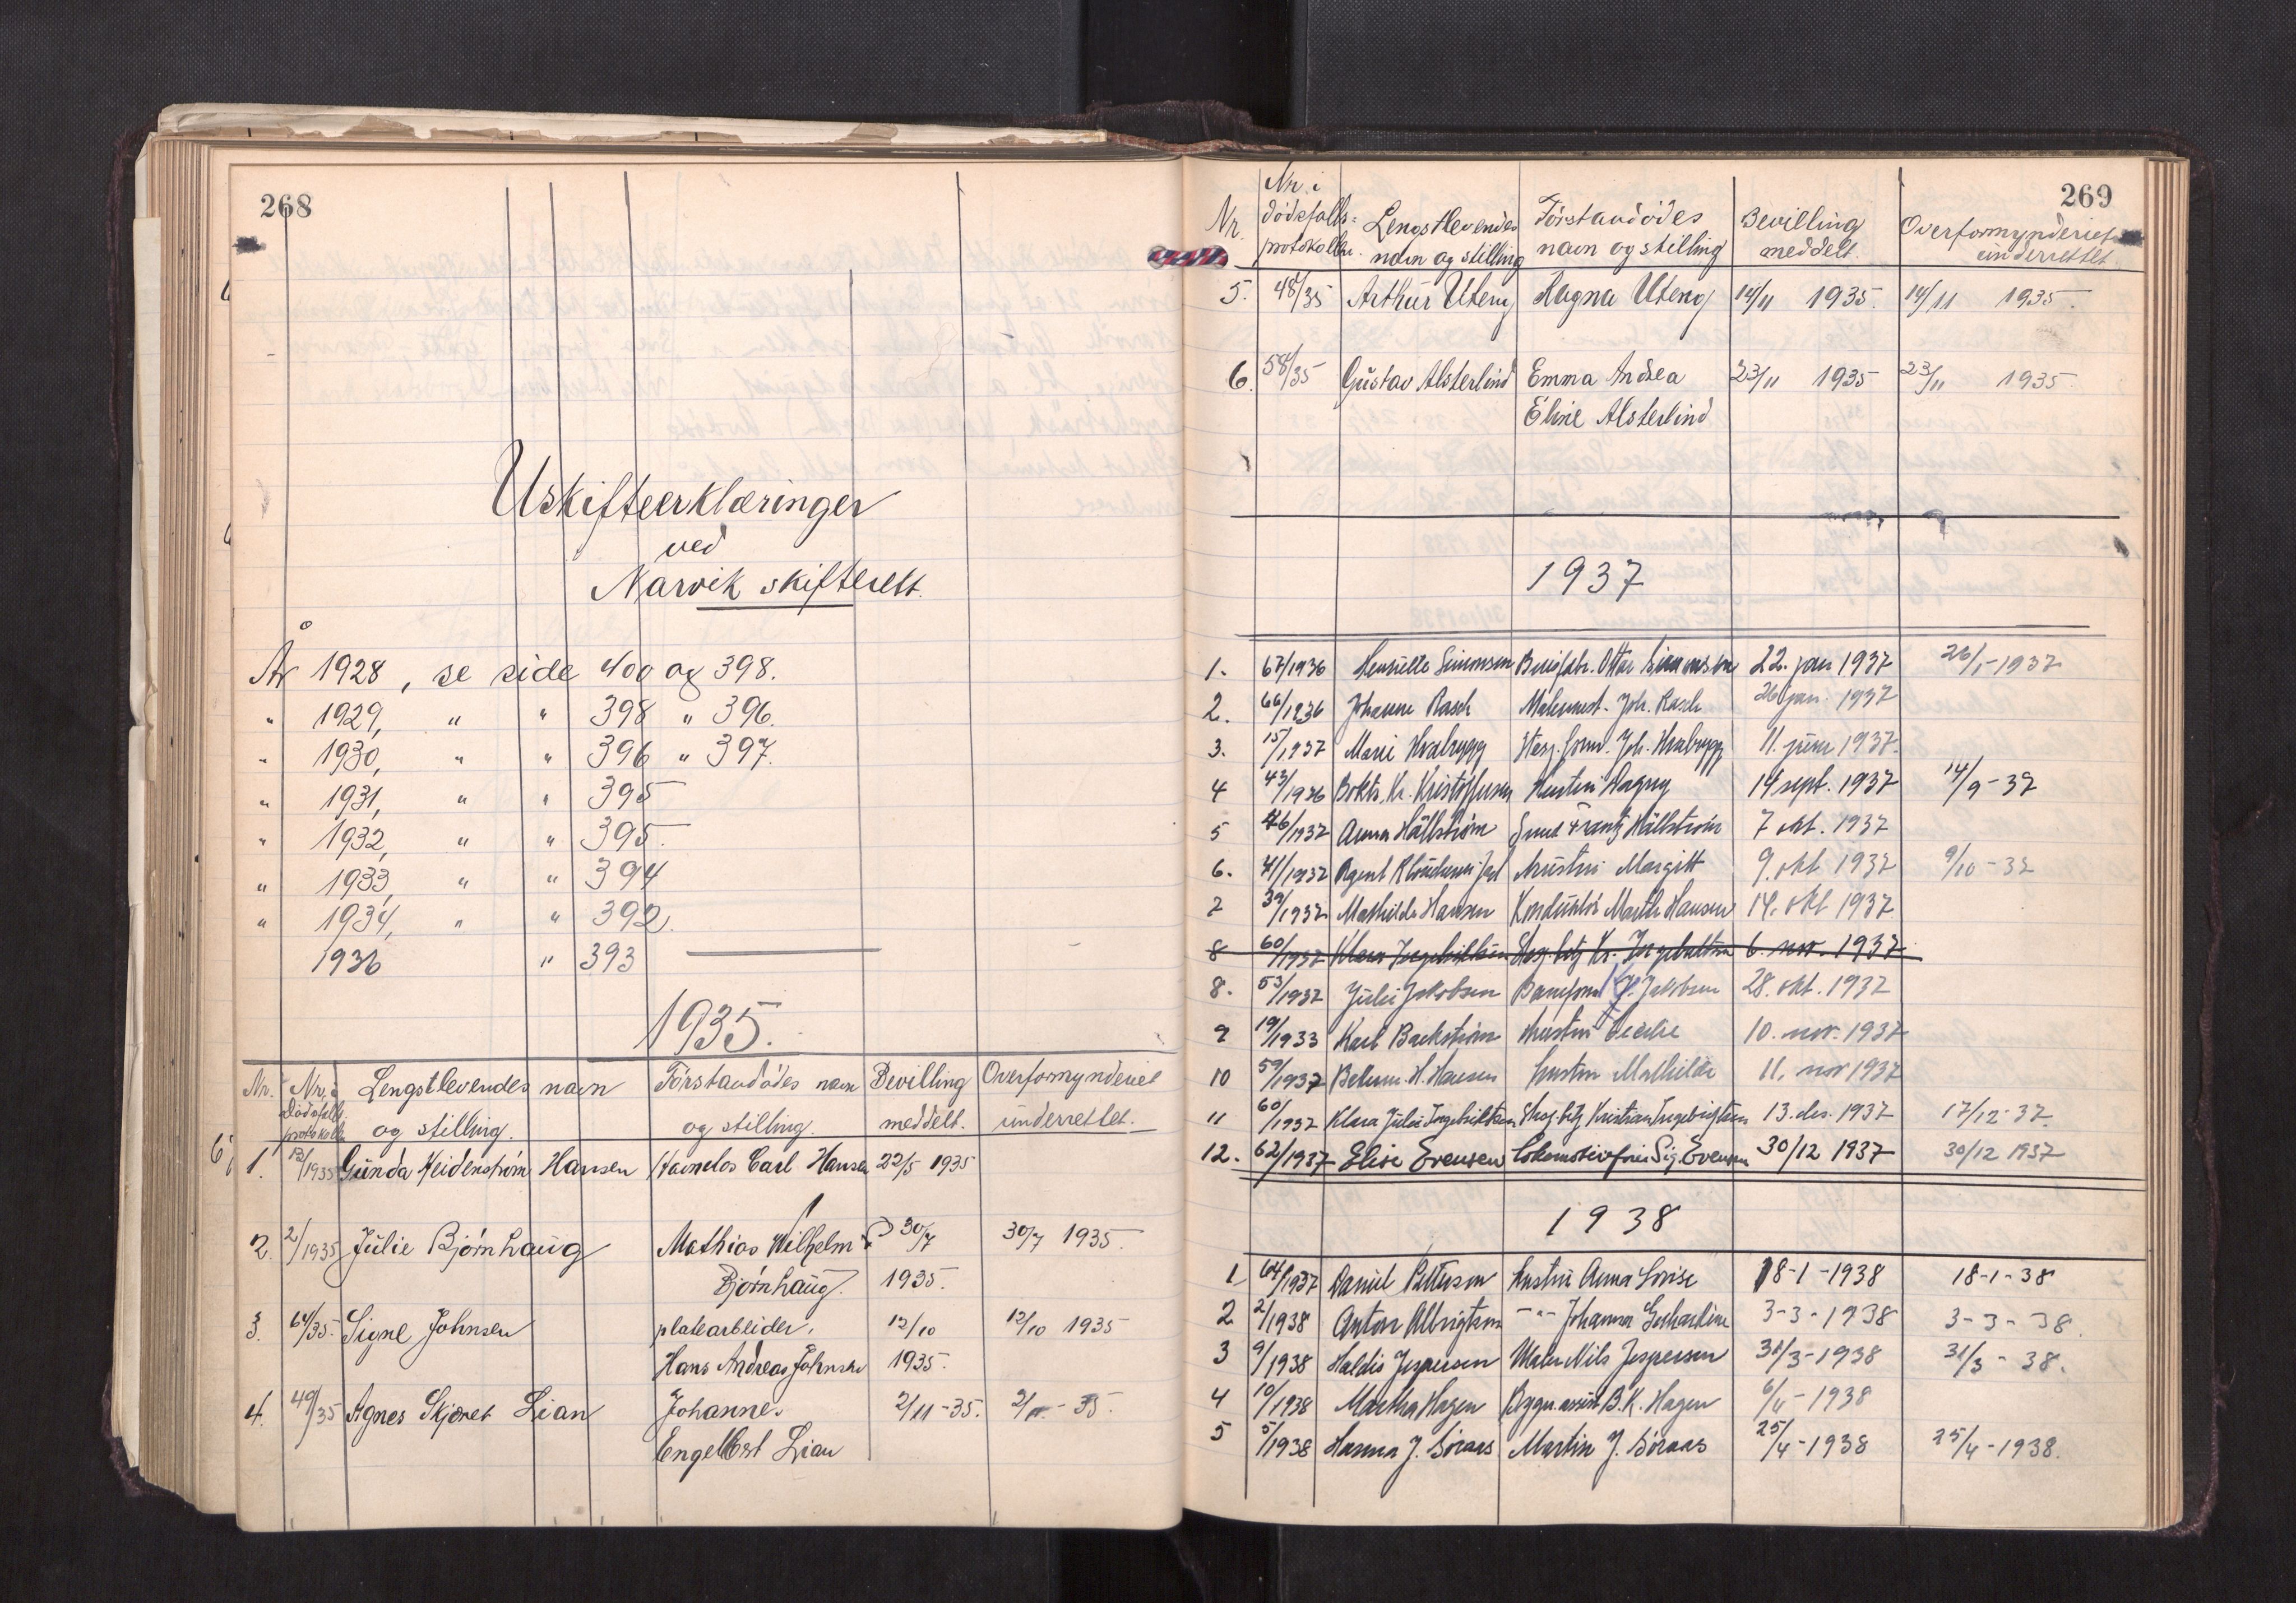 268
Uskifteerklæringer
ved
Narvik skifterett.
År 1928, se side 400 og 398.
" 1929, " " 398 " 396.
" 1930, " " 396 " 397.
" 1931, " " 395
" 1932, " " 395.
" 1933, " " 394
" 1934, " " 392.
1936 " 393
1935.
Nr. Nr. i Lengstlevendes navn Førstavdødes navn Bevilling Overformynderiet
dødsfalls protokoll og stilling. og stilling. meddelt. underrettet.
1. 12/1935 Gunda Heidenstrøm Hansen Carl Hansen 22/5 1935
2. 2/1935 Julie Bjørnhaug Mathias Wilhelm 30/7 30/7 1935.
Bjørnhaug. 1935.
3. 64/35. Signe Johnsen platearbeider, 12/10 12/10 1935
Hans Andreas Johnsen 1935.
4. 49/35 Agnes Skjøret Lian Johannes 2/11-35. 2/11-35.
Engelbert Lian
269
Nr. Nr. i dødsfalls- protokollen. Lengstlevendes navn og stilling Førstavdødes navn og stilling Bevilling meddelt. Overformynderiet underrettet.
5. 48/35 Arthur Uteng Magna Uteng 14/11 1935. 14/11 1935.
6. 58/35 Gustav Alsterlind Emma Andrea 23/11 1935 23/11 1935.
Eline Alsterlind
1937
1. 67/1936 Henriette Simonsen Ottar Simonsen 22. jan 1937 26/1-1937
2. 66/1936 Johanne Rasch Malermest. Joh. Rasch 26 jan. 1937
3. 15/1937 Marie Joh. 11. juni 1937.
4 43/1936 Kr. Kristoffersen Hustru Dagny 14 sept. 1937 14/9-37
5 46/1937 Anna Hällström Frantz Hällström 7 okt. 1937
6. 41/1937 Agent Hustru Margitt 9. okt 1937 9/10-37
7 39/1937 Mathilde Hansen Konduktør Hansen 14. okt 1937
8 60/1937 Klara Ingebriktsen Kr. Ingebriktsen 6. nov. 1937
8. 53/1937 Julie Jakobsen Jakobsen 28. okt. 1937
9 19/1933 Karl Backstrøm Hustru Cecilie 10. nov. 1937
10 59/1937 H. Hansen Hustru Mathilde 11. nov 1937
11 60/1937 Klara Julie Ingebriktsen Kristian Ingebrigtsen 13. des. 1937 17/12-37.
12. 62/1937 Elise Evensen Lokomotivfører Sig. Evensen 30/12 1937 30/12 1937
1938
1 64/1937 Daniel Pettersen Hustru Anna Lovise 18-1-1938 18-1-38
2 2/1938 Anton Albrigtsen -"- Johanna 3-3-1938 3-3-38.
3 9/1938 Haldis Jespersen Maler Nils Jespersen 31/3-1938 31/3-38.
4 10/1938 Martha Hagen B.K. Hagen 6/4-1938
5 5/1938 Hanna J. Soraas Martin J. Soraas 25/4-1938 25/4-1938.